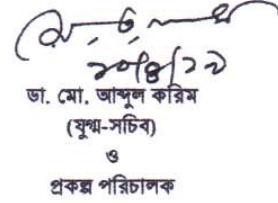 ডা. মো. আব্দুল করিম
(যুগ্ম-সচিব)
ও
প্রকল্প পরিচালক